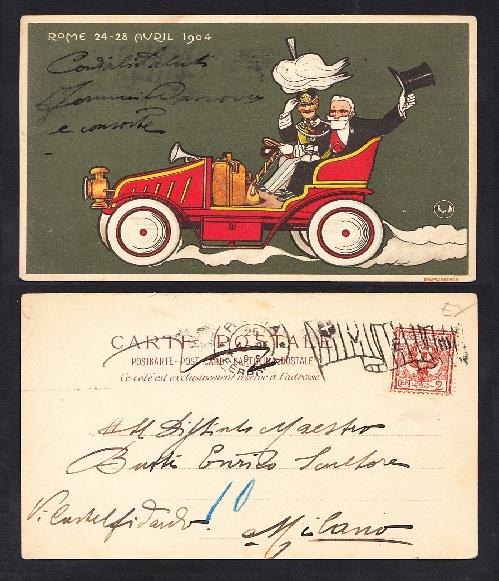 ROME 24-28 AVRIL 1904
Cordiali Saluti
e consorte
DEPOSITATA
EX
CARTE POSTALE
POSTKARTE-POST CARD-KARTA
Ce côté est exclusivement réservé à l'adresse
CEN. 2
All Distinto Maestro
Butti Enrico Scultore
V. Castelfidardo 10
Milano